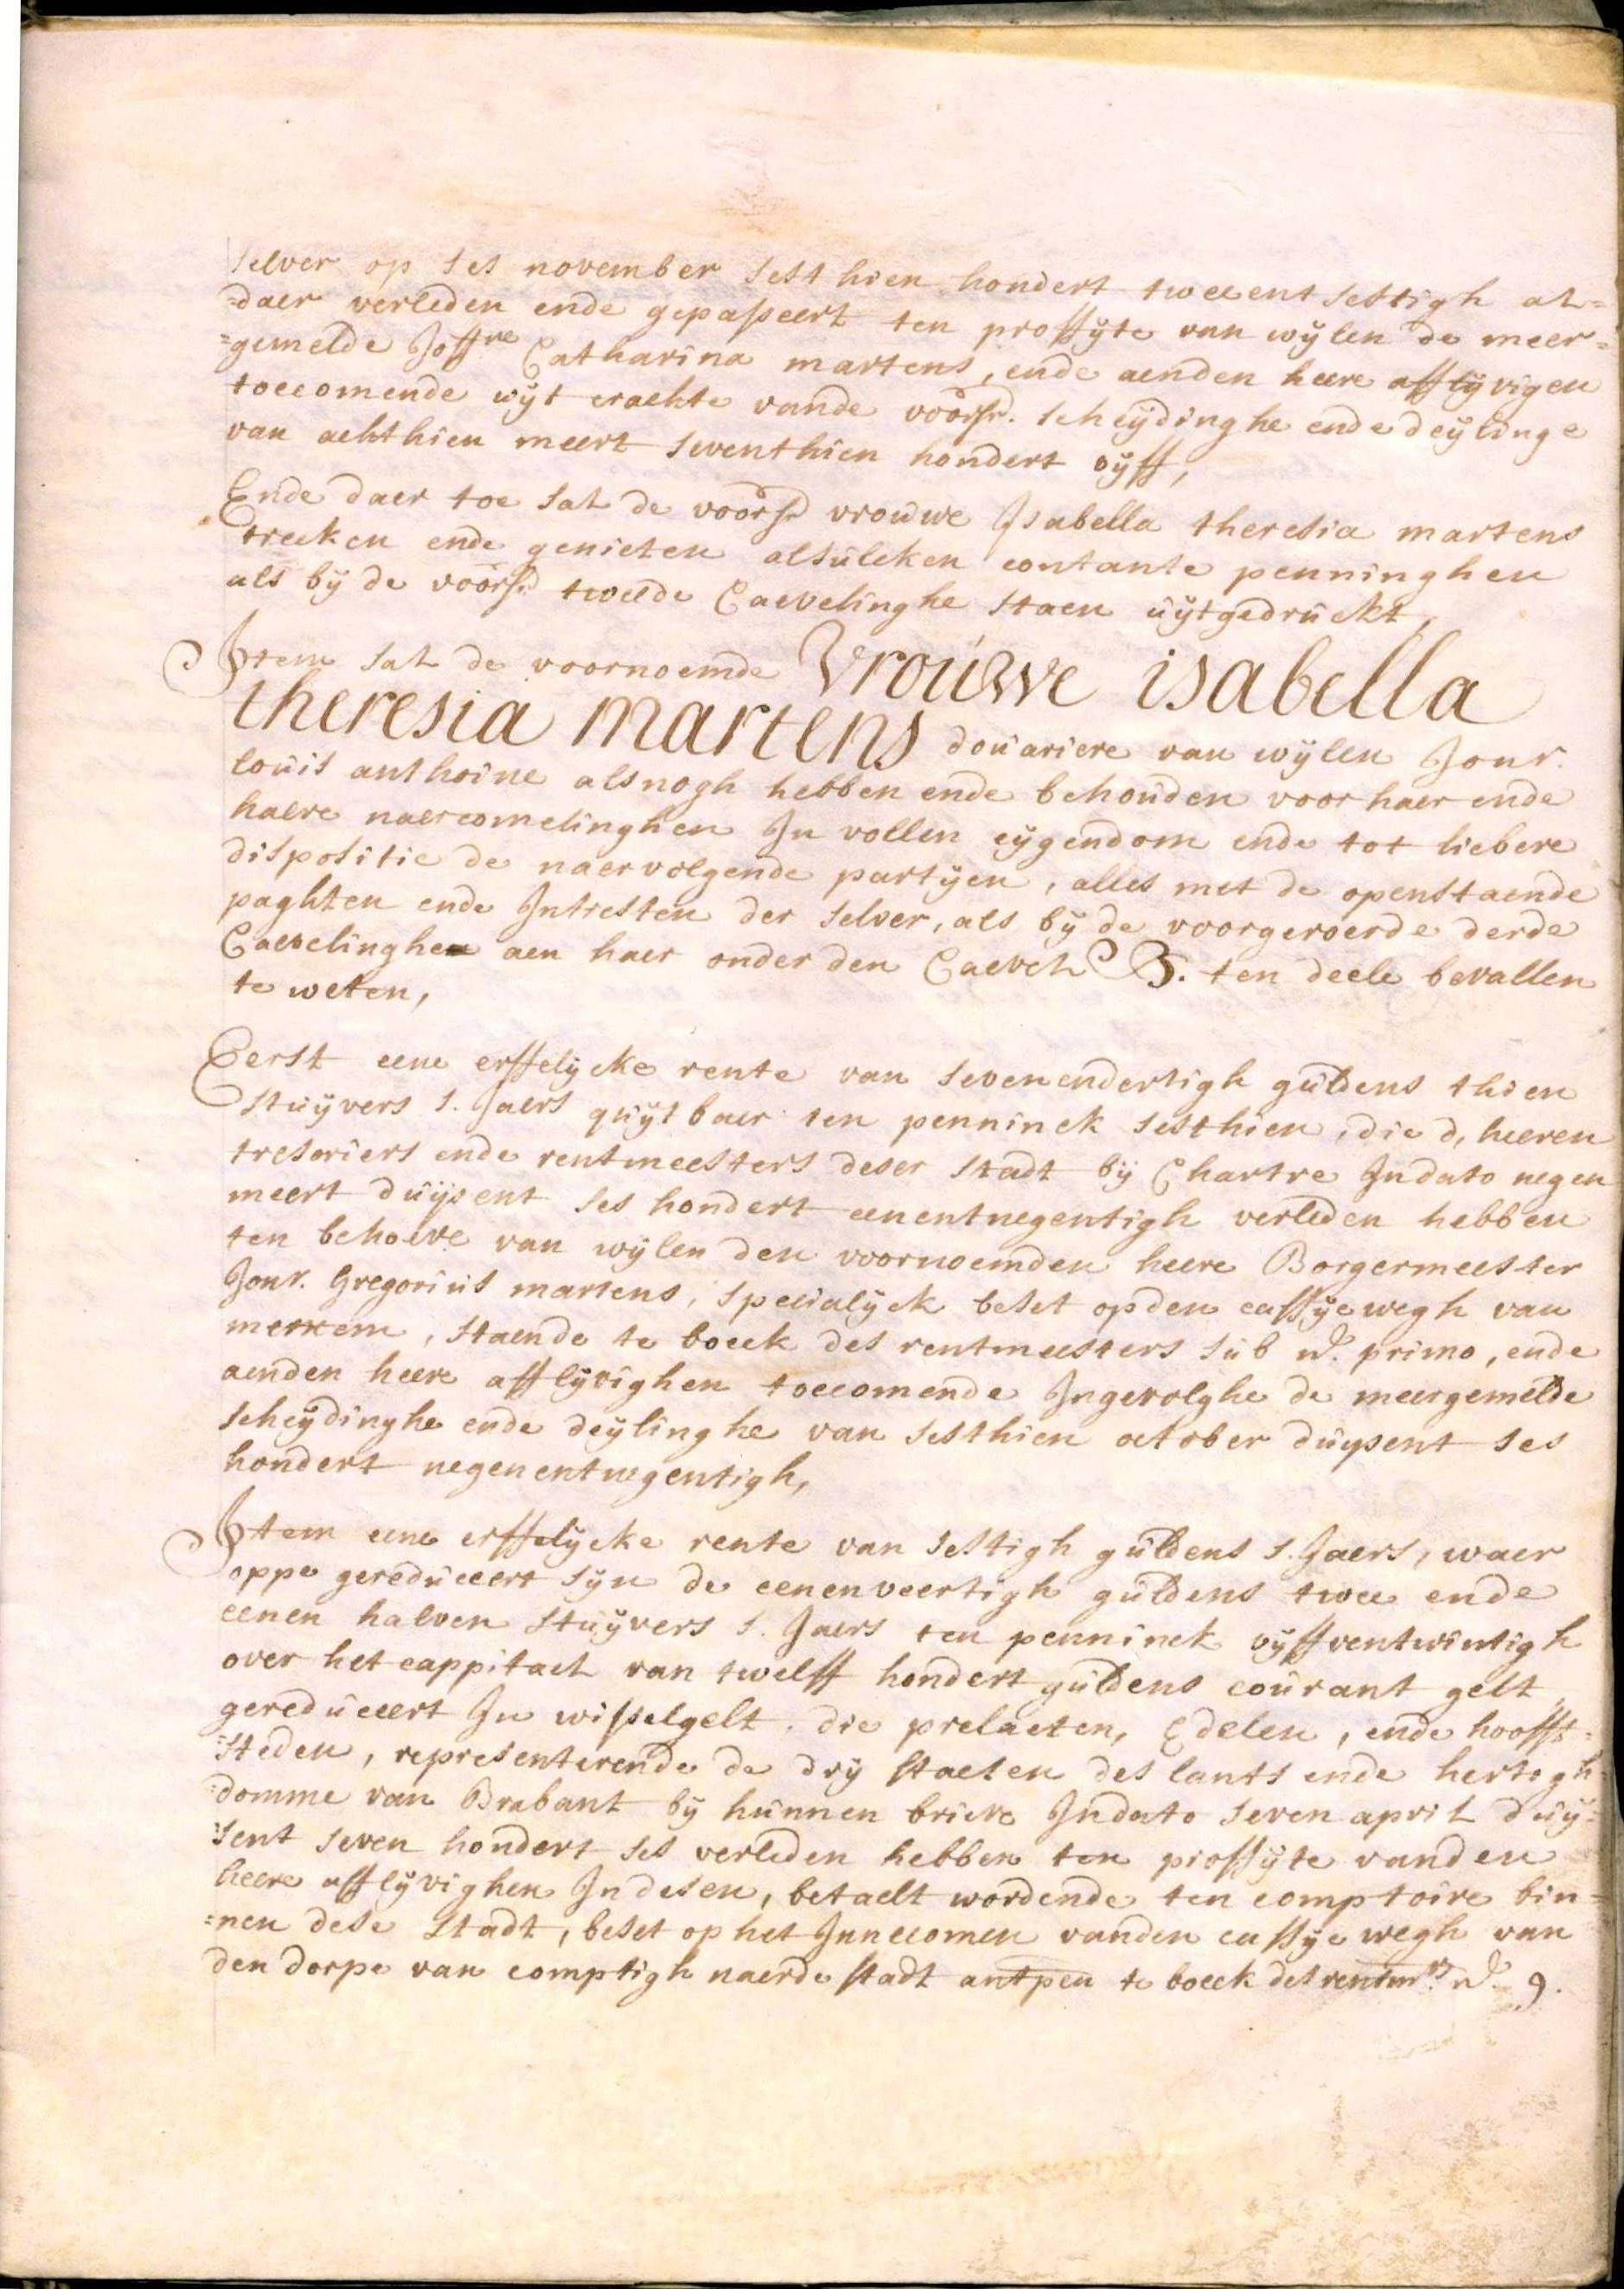 selver op ses november sesthien hondert tweeentsestigh al=
=daer verleden ende gepasseert ten proffyte van wylen de meer=
=gemelde Joffre Catharina martens, ende aenden heere afflyvigen
toecomende uyt crachte vande voorsr. scheydinghe ende deylinge
van achthien meert seventhien hondert vyff,
Ende daer toe sal de voorsr vrouwe Isabella theresia martens
trecken ende genieten alsulcken contante penninghen
als by de voorsr. tweede Caevelinghe staen uytgedruckt,
Item sal de voornoemde Vrouwe isabella
theresia martens douariere van wylen Jonr.
louis anthoine alsnogh hebben ende behouden voor haer ende
haere naercomelinghen In vollen eygendom ende tot liebere
dispositie de naervolgende partyen, alles met de openstaende
paghten ende Intresten der selver, als by de voorgeroerde derde
Caevelinghen aen haer onder den Caevel B. ten deele bevallen
te weten,
Eerst eene erffelycke rente van sevenendertigh guldens thien
stuyvers s. Jaers quytbaer ten penninck sesthien, die d, heeren
tresoriers ende rentmeesters deser stadt by Chartre Indato negen
meert duysent ses hondert eenentnegentigh verleden hebben
ten behoeve van wylen den voornoemden heere Borgermeester
Jonr. Gregorius martens, specialyck beset opden cassye wegh van
merxem, staende te boeck des rentmeesters sub No. primo, ende
aenden heere afflyvighen toecomende Ingevolghe de meergemelde
scheydinghe ende deylinghe van sesthien october duysent ses
hondert negenentnegentigh,
Item eene erffelycke rente van sestigh guldens s. Jaers, waer
oppe gereduceert syn de eenenveertigh guldens twee ende
eenen halven stuyvers s. Jaers ten penninck vyffventwintigh
over het cappitael van twelff hondert guldens courant gelt
gereduceert In wisselgelt, die prelaeten, Edelen, ende hoofft=
steden, representerende de dry staeten des lants ende hertogh=
=domme van Brabant by hunnen brieve Indato seven april duy=
=sent seven hondert ses verleden hebben ten proffyte vanden
heere afflyvighen In desen, betaelt wordende ten comptoire bin=
=nen dese stadt, beset op het Innecomen vanden cassye wegh van
den dorpe van comptigh naerde stadt antpen te boeck des rentmrs. No. 9.